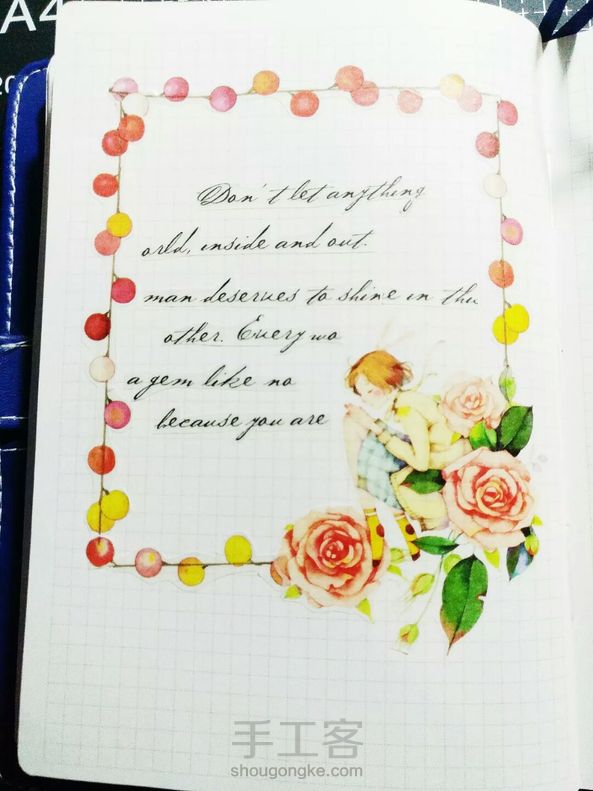 A4
Don't let anything
orld, inside and out.
man deserves to shine in the
other. Every wo
a gem like no
because you are
手工客
shougongke.com